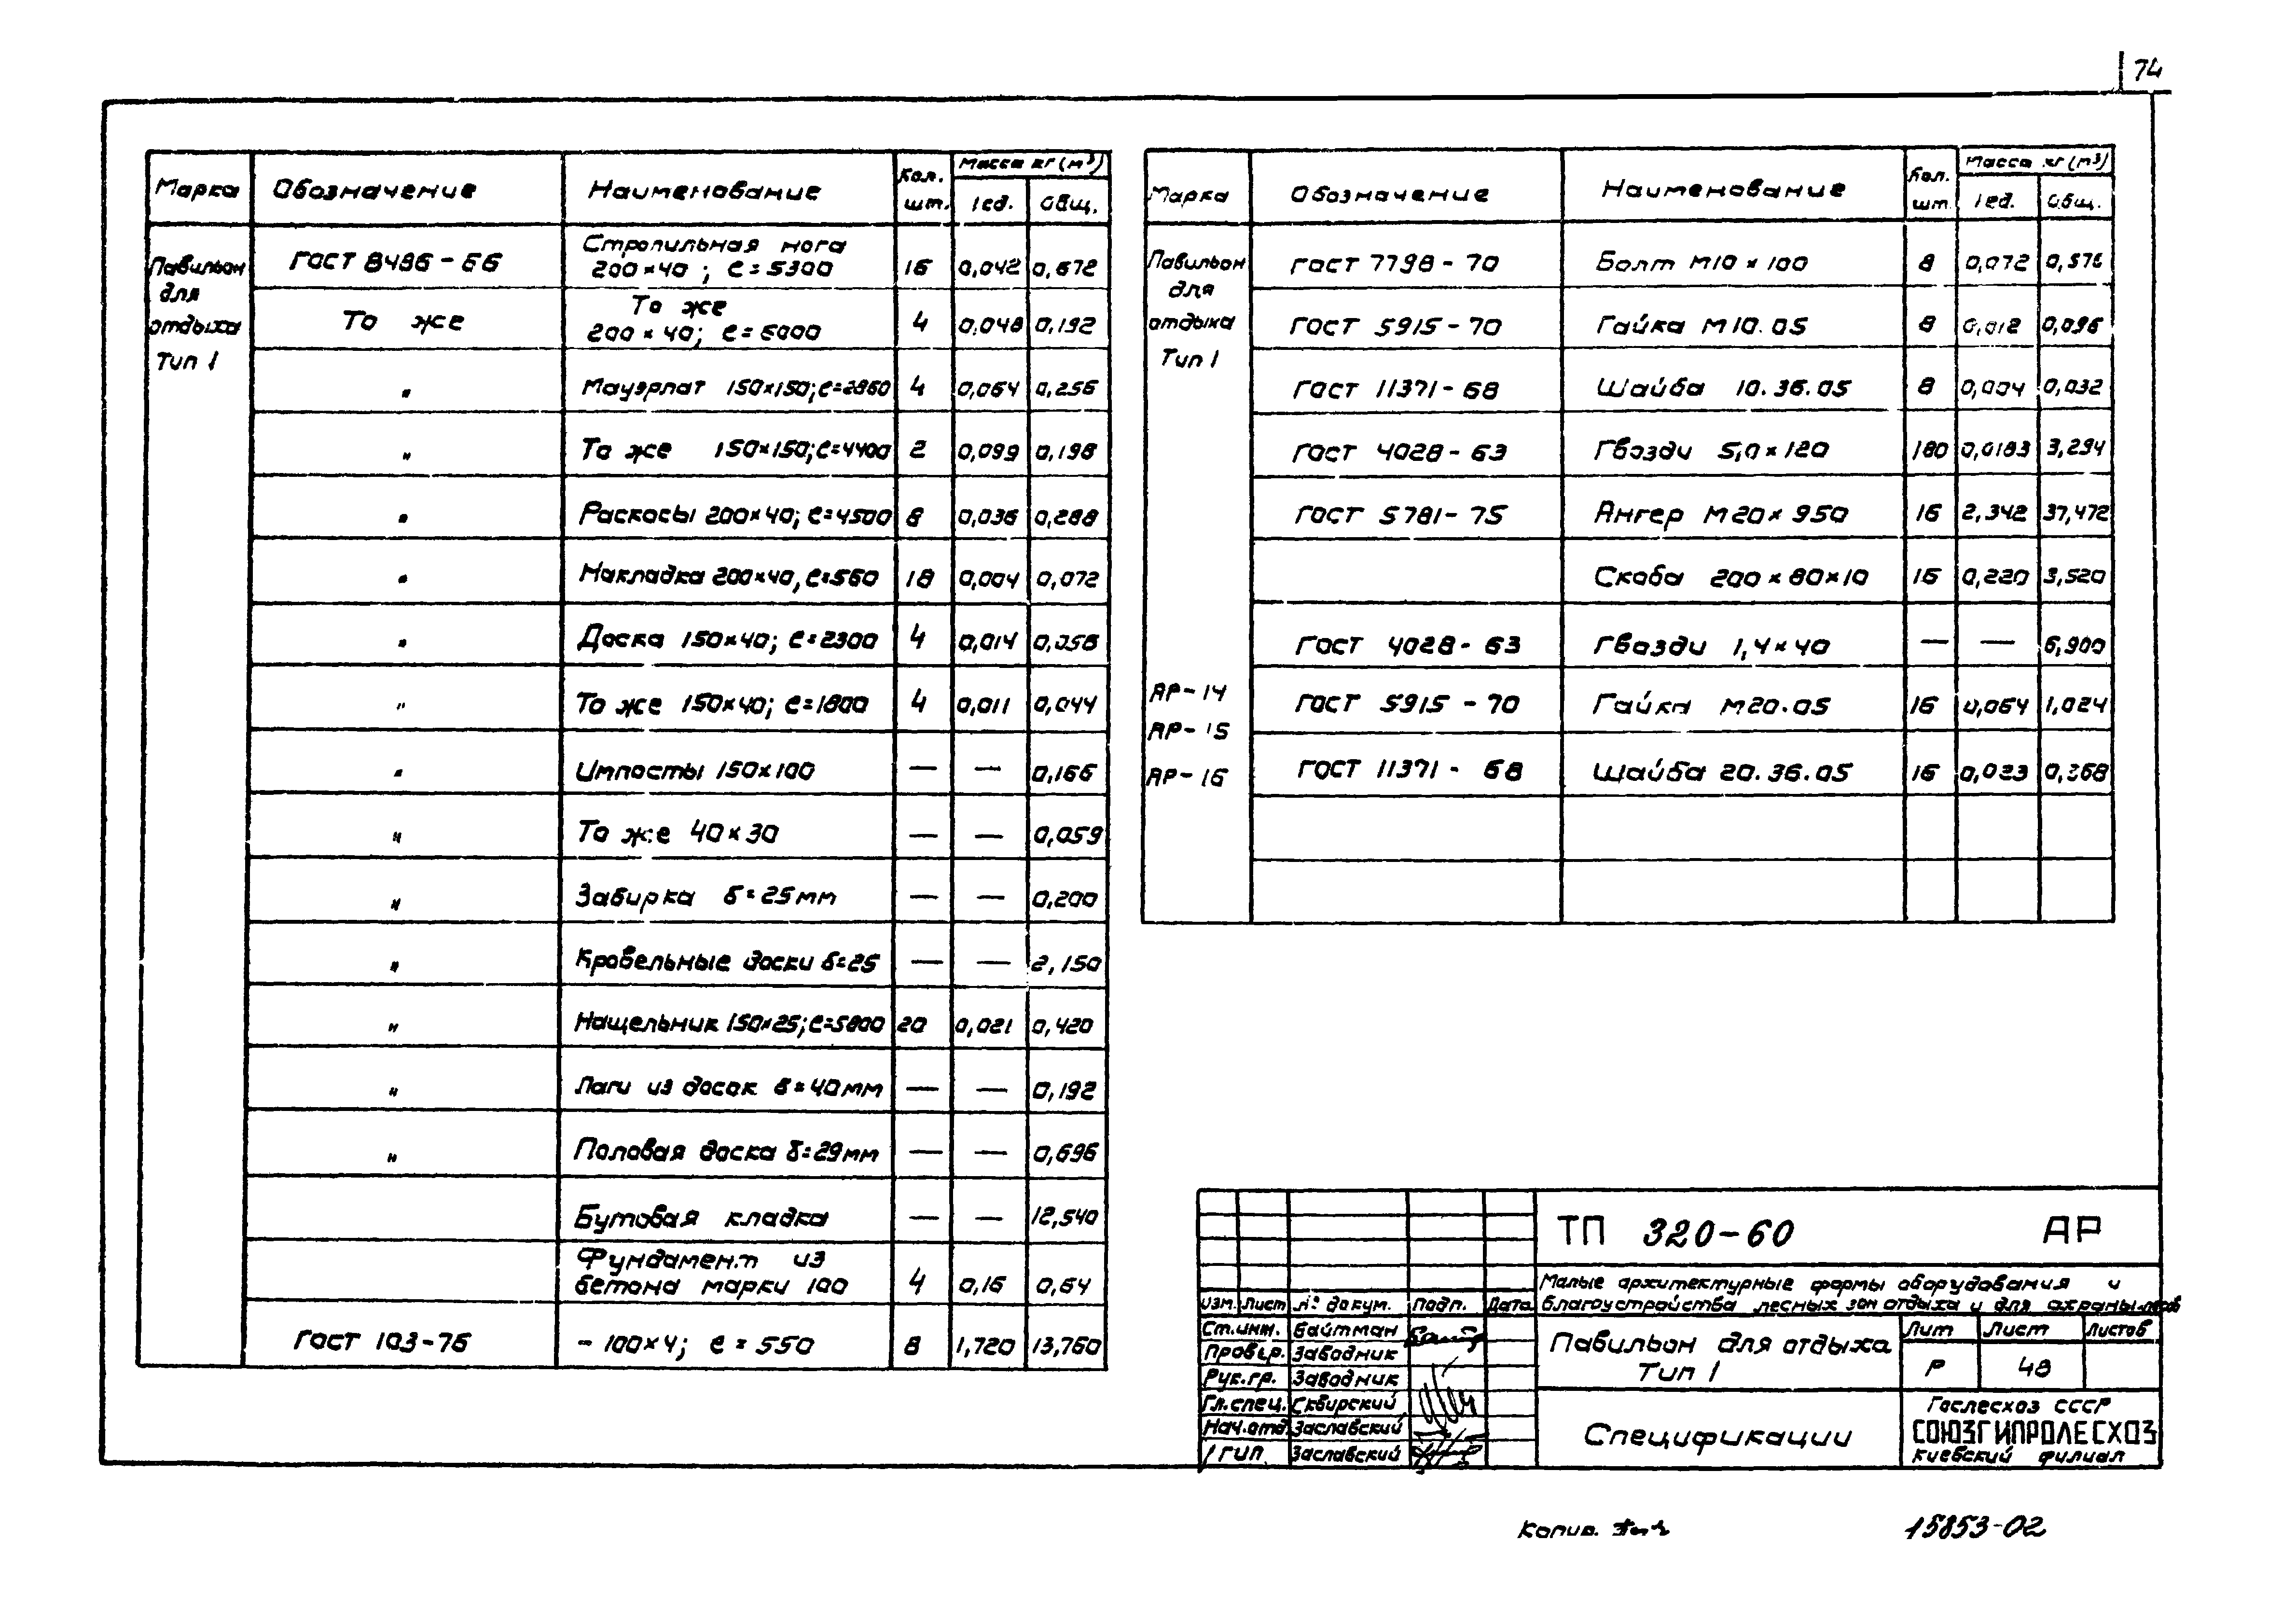 74
Марка Обозначение Наименование Кол. шт. Масса кг (м³) 1ед. Общ.
Павильон для отдыха Тип 1
ГОСТ 8486-66 Стропильная нога 200×40; ℓ=5300 16 0,042 0,672
То же То же 200×40; ℓ=6000 4 0,048 0,192
" Мауэрлат 150×150; ℓ=2860 4 0,064 0,256
" То же 150×150; ℓ=4400 2 0,099 0,198
" Раскосы 200×40; ℓ=4500 8 0,036 0,288
" Накладка 200×40, ℓ=560 18 0,004 0,072
" Доска 150×40; ℓ=2300 4 0,014 0,056
" То же 150×40; ℓ=1800 4 0,011 0,044
" Импосты 150×100 — — 0,166
" То же 40×30 — — 0,059
" Забирка δ=25мм — — 0,200
" Кровельные доски δ=25 — — 2,150
" Нащельник 150×25; ℓ=5800 20 0,021 0,420
" Лаги из досок δ=40мм — — 0,192
" Половая доска δ=29мм — — 0,696
Бутовая кладка — — 12,540
Фундамент из бетона марки 100 4 0,16 0,64
ГОСТ 103-76 - 100×4; ℓ=550 8 1,720 13,760
Марка Обозначение Наименование Кол. шт. Масса кг (м³) 1ед. Общ.
Павильон для отдыха Тип 1
ГОСТ 7798-70 Болт М10×100 8 0,072 0,576
ГОСТ 5915-70 Гайка М10.05 8 0,012 0,096
ГОСТ 11371-68 Шайба 10.36.05 8 0,004 0,032
ГОСТ 4028-63 Гвозди 5,0×120 180 0,0183 3,294
ГОСТ 5781-75 Анкер М20×950 16 2,342 37,472
Скоба 200×80×10 16 0,220 3,520
ГОСТ 4028-63 Гвозди 1,4×40 — — 6,900
АР-14 ГОСТ 5915-70 Гайка М20.05 16 0,064 1,024
АР-15
АР-16 ГОСТ 11371-68 Шайба 20.36.05 16 0,023 0,368
ТП 320-60 АР
Малые архитектурные формы оборудования и
благоустройства лесных зон отдыха и для охраны лесов
Изм. Лист № докум. Подп. Дата
Ст.инж. Байтман
Провер. Заводник
Рук.гр. Заводник
Гл.спец. Сквирский
Нач.отд. Заславский
ГИП Заславский
Павильон для отдыха
Тип 1
Лит Лист Листов
Р 48
Спецификации
Гослесхоз СССР
СОЮЗГИПРОЛЕСХОЗ
Киевский филиал
Копир.
15853-02